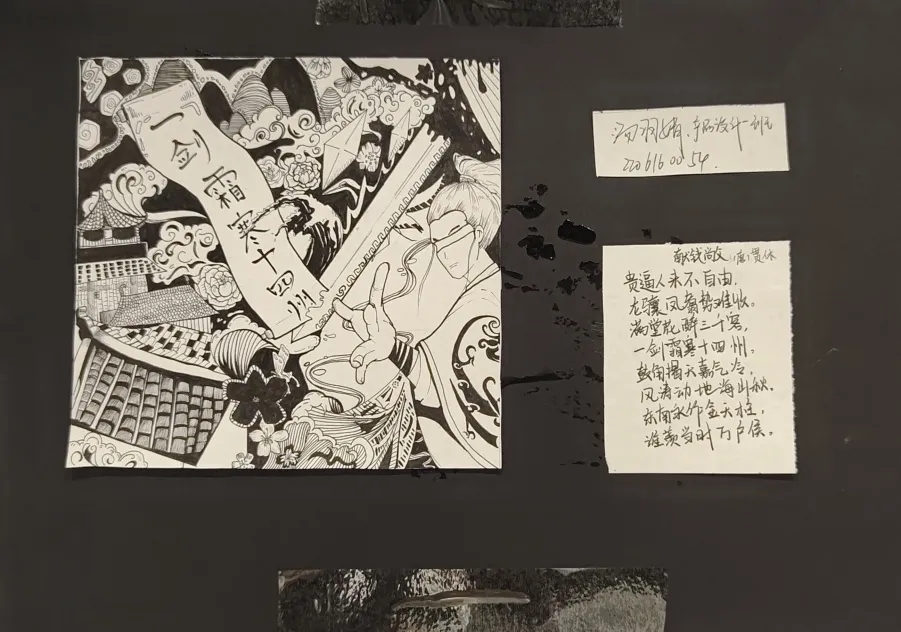 一剑霜寒十四州
220616 00 54.
献钱尚父 唐 贯休
贵逼人来不自由,
龙骧凤翥势难收。
满堂花醉三千客,
一剑霜寒十四州。
鼓角揭天嘉气冷,
风涛动地海山秋。
东南永作金天柱,
谁羡当时万户侯。